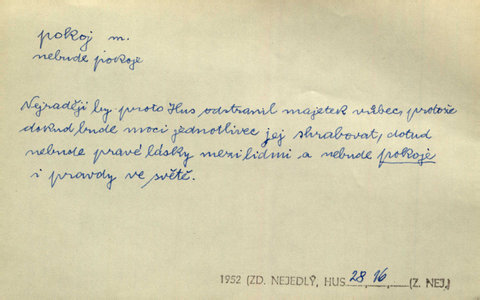 pokoj m.
nebude pokoje
Nejraději by proto Hus odstranil majetek vůbec, protože
dokud bude moci jednotlivec jej shrabovat, dotud
nebude pravé lásky mezi lidmi a nebude pokoje
i pravdy ve světě.
1952 (ZD. NEJEDLÝ, HUS 28, 16 (Z. NEJ.)